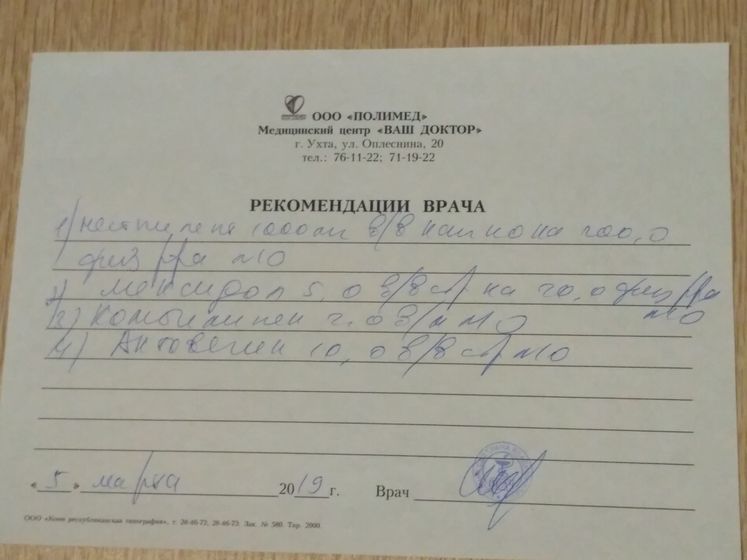 ООО «ПОЛИМЕД»
Медицинский центр «ВАШ ДОКТОР»
г. Ухта, ул. Оплеснина, 20
тел.: 76-11-22; 71-19-22
РЕКОМЕНДАЦИИ ВРАЧА
1) 1000мг в/в кап но на 200,0
физ р-ра N10
мексидол 5,0 в/в стр на 20,0 физ р-ра
N10
Комбилипен 2,0 в/м N10
4) Актовегин 10,0 в/в стр N10
«5» марта 2019г. Врач
ООО «Коми республиканская типография», т. 28-46-72, 28-46-73. Зак. № 580. Тир. 2000.